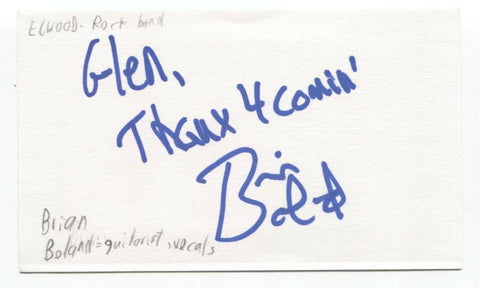 ELWOOD- Rock band
Glen,
Thanx 4 comin'
Brian Boland
Brian
Boland=guitarist, vocals